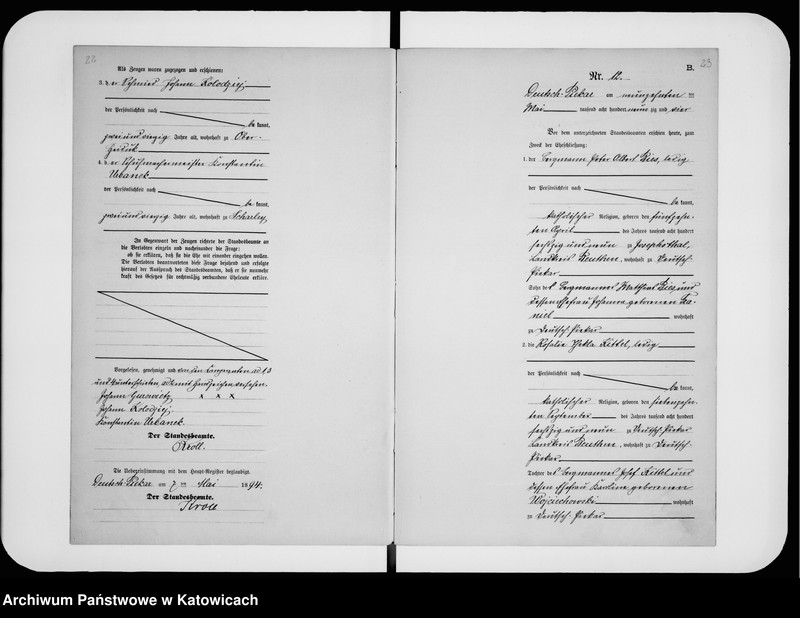 22
Als Zeugen waren zugezogen und erschienen:
3. der Schmied Johann Kolodziej,
der Persönlichkeit nach
be kannt,
zweiundvierzig Jahre alt, wohnhaft zu Ober-
4. der Schuhmachermeister Konstantin
Urbanek
der Persönlichkeit nach
be kannt,
zweiundvierzig Jahre alt, wohnhaft zu Scharley,
In Gegenwart der Zeugen richtete der Standesbeamte an
die Verlobten einzeln und nacheinander die Frage:
ob sie erklären, daß sie die Ehe mit einander eingehen wollen.
Die Verlobten beantworteten diese Frage bejahend und erfolgte
hierauf der Ausspruch des Standesbeamten, daß er sie nunmehr
kraft des Gesetzes für rechtmäßig verbundene Eheleute erkläre.
Vorgelesen, genehmigt und von
Johann x x x
Johann Kolodziej,
Konstantin Urbanek.
Der Standesbeamte.
Kroll.
Die Uebereinstimmung mit dem Haupt-Register beglaubigt.
Deutsch-Piekar am 7 ten Mai 1894.
Der Standesbeamte.
Kroll
23
B.
Nr. 12.
Deutsch-Piekar am neunzehnten ten
Mai tausend acht hundert neun zig und vier
Vor dem unterzeichneten Standesbeamten erschien heute, zum
Zweck der Eheschließung:
1. der Bergmann Peter Albert Bies, ledig
der Persönlichkeit nach
be kannt,
katholischer Religion, geboren den fünfzehn-
ten April des Jahres tausend acht hundert
sechszig und neun zu Josephsthal,
Landkreis Beuthen, wohnhaft zu Deutsch-
Piekar
Sohn des Bergmannes Matthäus Bies und
dessen Ehefrau Johanna geborenen Da-
niel wohnhaft
zu Deutsch-Piekar
2. die Rosalie Thekla Kittel, ledig
der Persönlichkeit nach
be kannt,
katholischer Religion, geboren den siebenzehn-
ten September des Jahres tausend acht hundert
sechszig und neun zu Deutsch-Piekar
Landkreis Beuthen, wohnhaft zu Deutsch-
Piekar
Tochter des Bergmannes Josef Kittel und
dessen Ehefrau Karoline geborenen
Wojciechowski wohnhaft
zu Deutsch-Piekar
Archiwum Państwowe w Katowicach